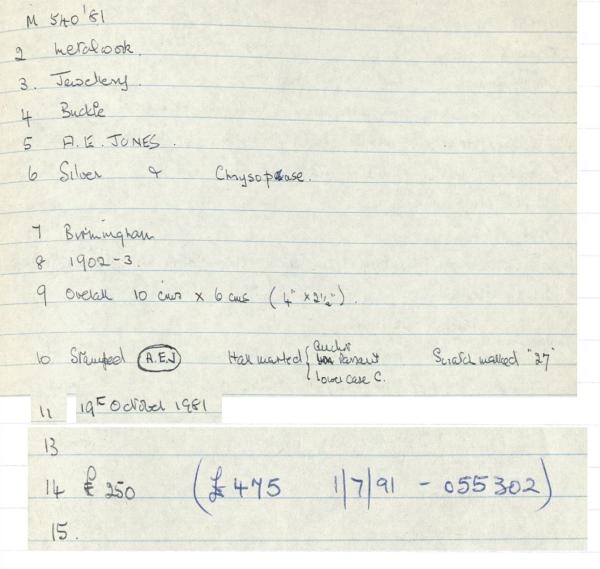 M 540'81
2 Metalwork.
3. Jewellery.
4 Buckle
5 A.E. JONES.
6 Silver & Chrysoprase.
7 Birmingham
8 1902-3.
9 Overall 10 cms x 6 cms (4" x 2½").
10 Stamped A.E.J Hallmarked { Anchor
Lion Passant
lower case C.
Scratch marked "27"
11 19th October 1981
13
14 £250 (£475 1/7/91 - 055302)
15.